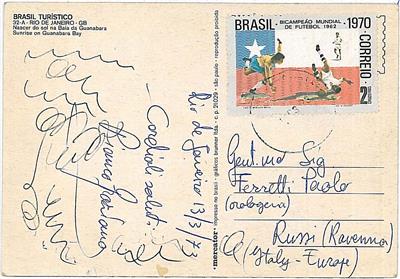 BRASIL TURÍSTICO
32-A - RIO DE JANEIRO - GB
Nascer do sol na Baía da Guanabara
Sunrise on Guanabara Bay
Rio de Janeiro 13/3/73
Cordiali saluti
"mercator"
impresso no brasil - gráficos brunner ltda. - c.p. 21.029 - são paulo - reprodução proibida
BRASIL
BICAMPEÃO MUNDIAL
DE FUTEBOL 1962
1970
CORREIO
2
Gent.mo Sig
Ferretti Paolo
(orologeria)
Russi (Ravenna)
(Italy - Europe)